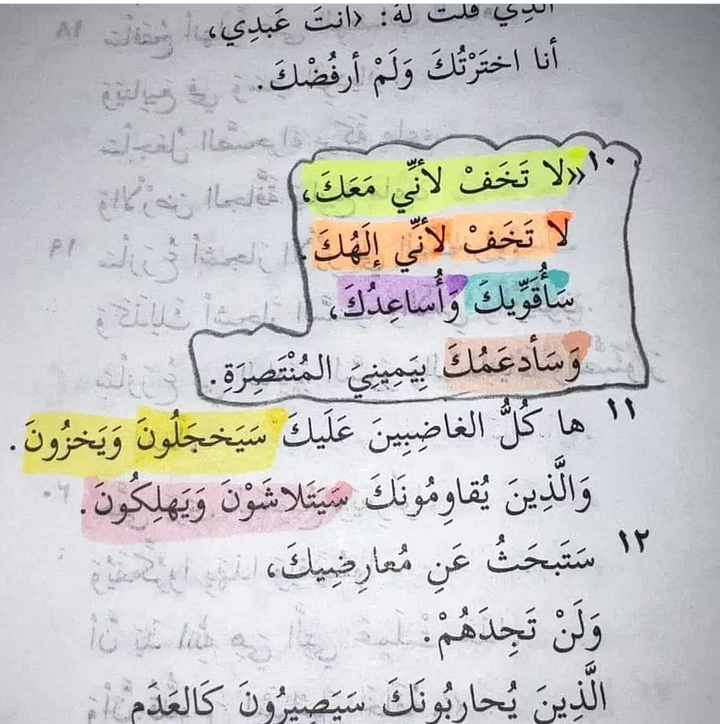 الَّذِي قُلتُ لَهُ: ‹أنتَ عَبدِي،
أنا اختَرْتُكَ وَلَمْ أرفُضْكَ.
١٠ «لا تَخَفْ لأنِّي مَعَكَ،
لا تَخَفْ لأنِّي إلَهُكَ.
سَأُقَوِّيكَ وَأُساعِدُكَ،
وَسَأدعَمُكَ بِيَمِينِيَ المُنْتَصِرَةِ.
١١ ها كُلُّ الغاضِبِينَ عَلَيكَ سَيَخجَلُونَ وَيَخزُونَ.
وَالَّذِينَ يُقاوِمُونَكَ سَيَتَلاشَوْنَ وَيَهلِكُونَ.
١٢ سَتَبحَثُ عَنِ مُعارِضِيكَ،
وَلَنْ تَجِدَهُمْ.
الَّذِينَ يُحارِبُونَكَ سَيَصِيرُونَ كَالعَدَمِ